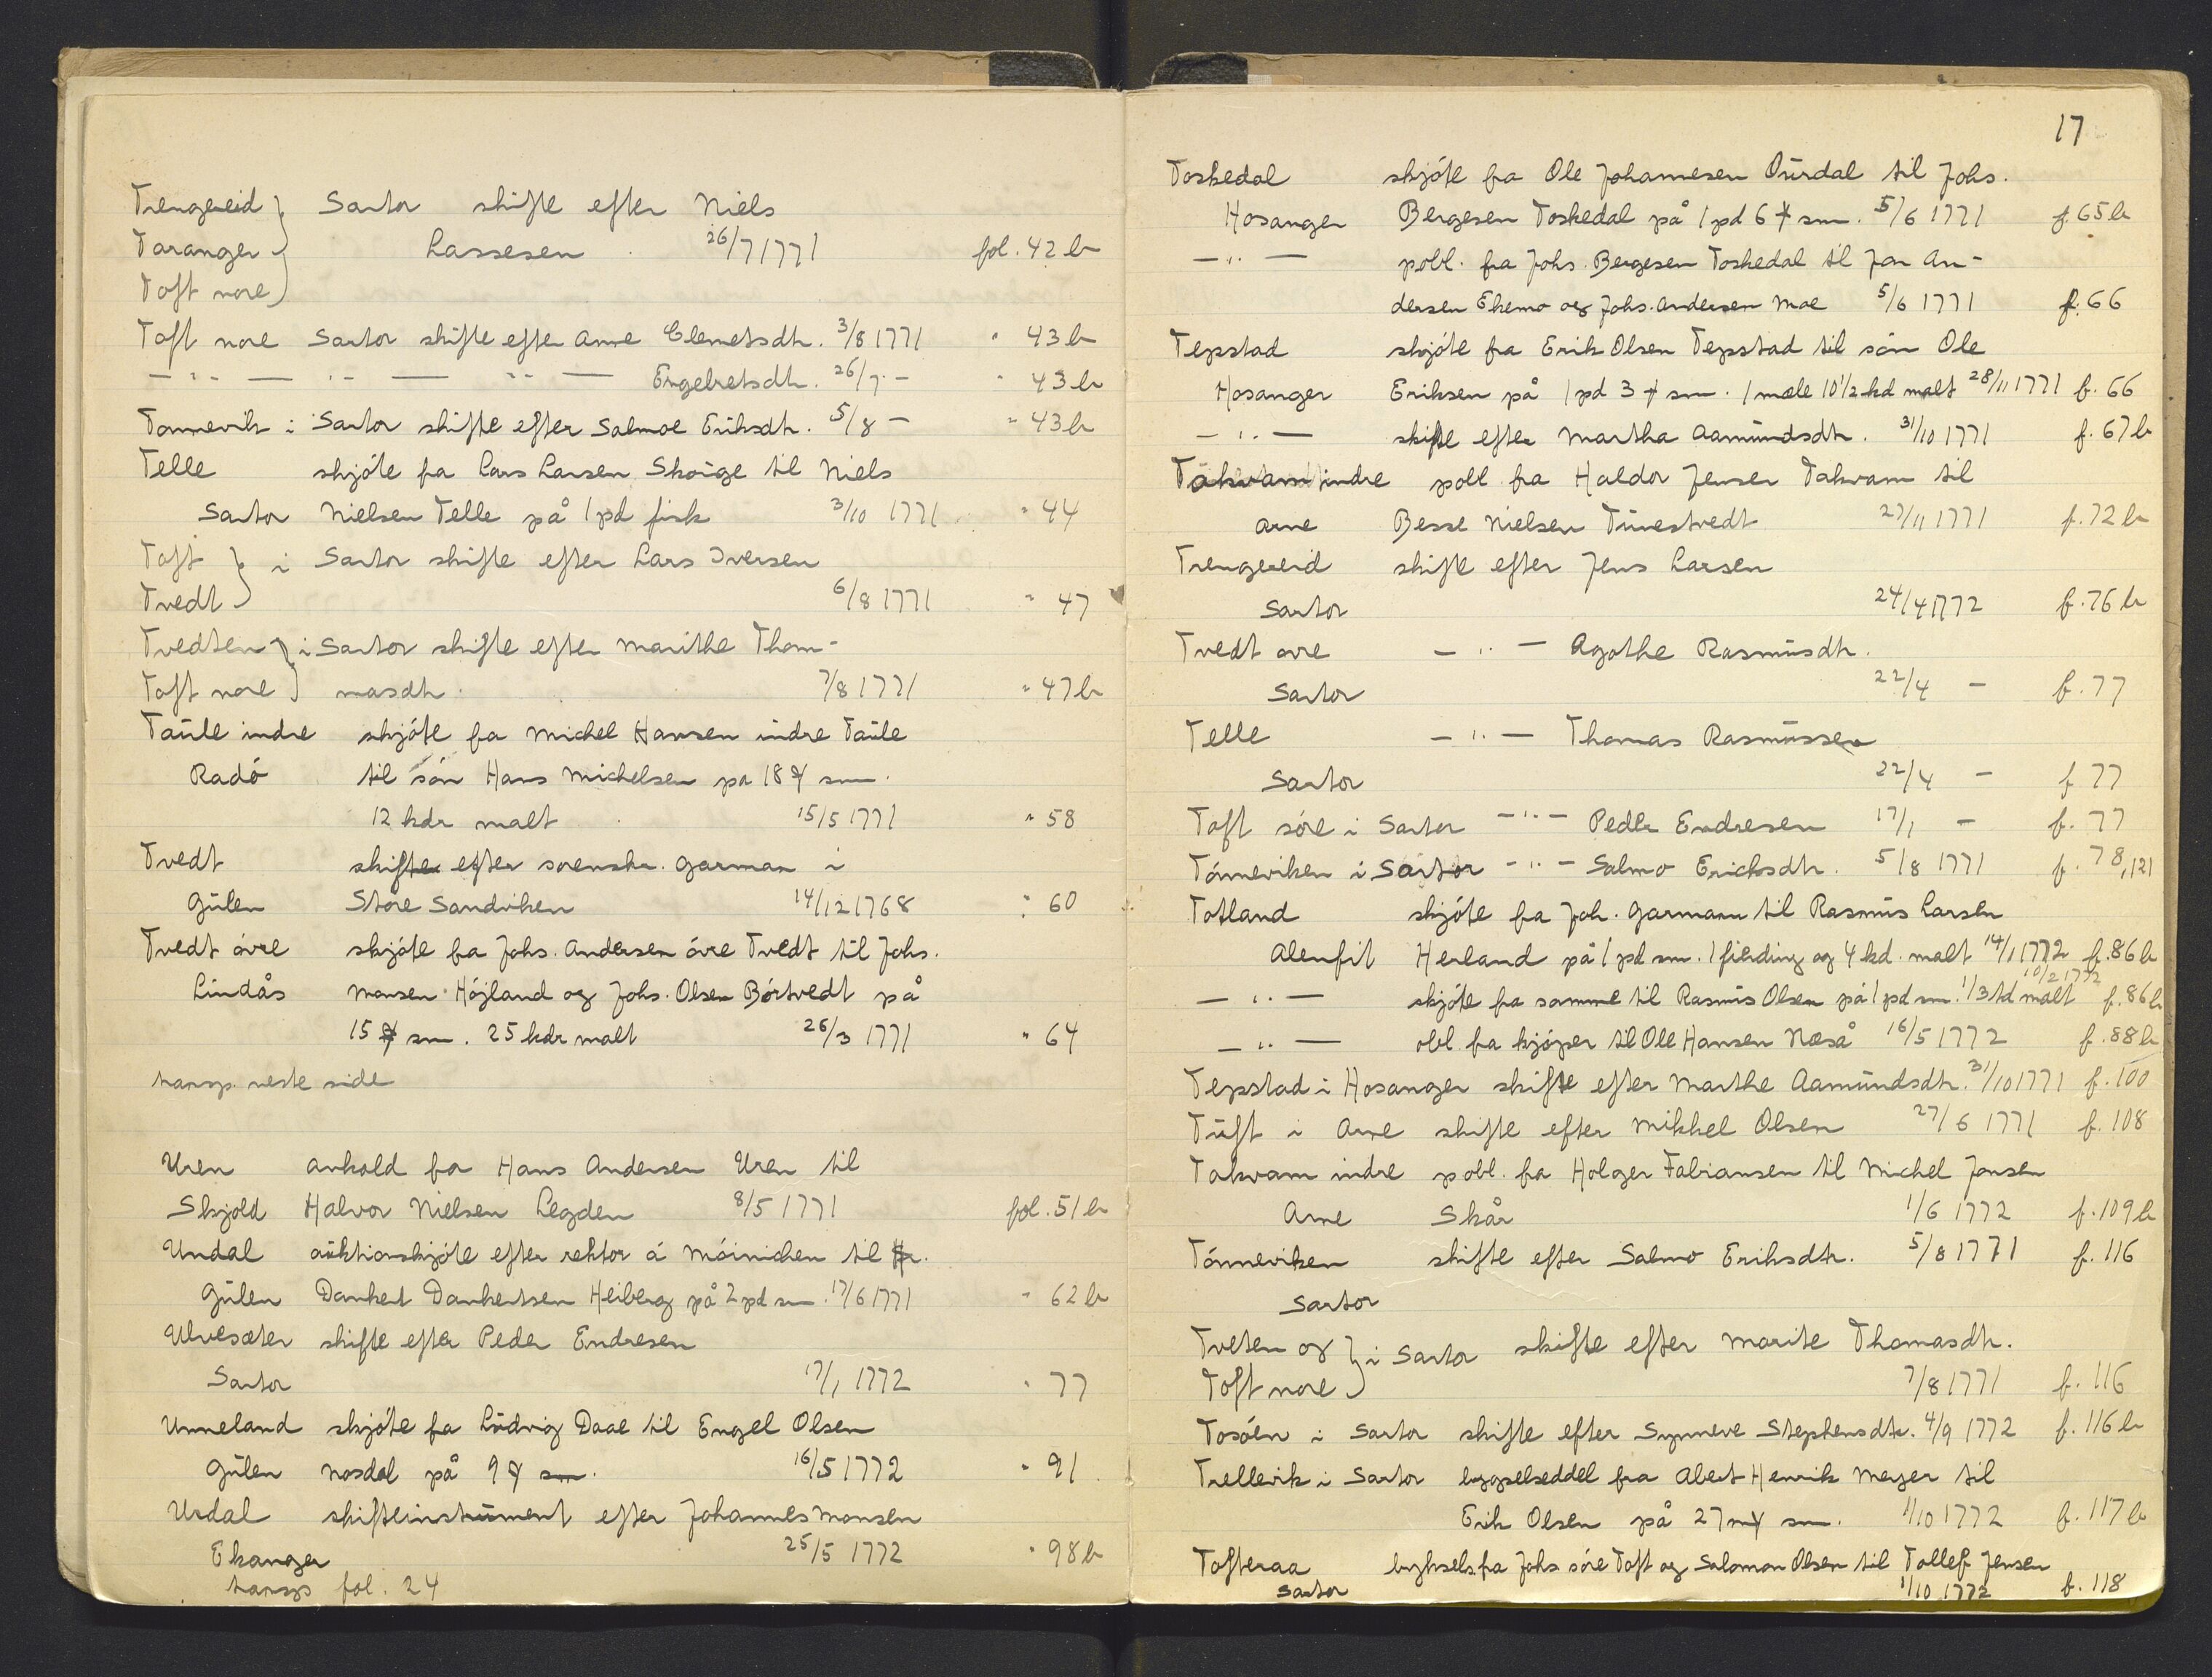 Trengereid } Sartor skifte efter Niels
Taranger } Lassesen 26/7 1771 fol. 42 b
Toft nore }
Toft nore Sartor skifte efter Anne Clemetsdtr. 3/8 1771 " 43 b
— " — " — " — Engelretsdtr. 26/7 - " 43 b
Tonnevik i Sartor skifte efter Salmoe Eriksdtr. 5/8 - " 43 b
Telle skjóte fra Lars Larsen Skoüge til Niels
Sartor Nielsen Telle på 1 pd fisk 3/10 1771 " 44
Toft } i Sartor skifte efter Lars Iversen
Tvedt } 6/8 1771 " 47
Tvedten } i Sartor skifte efter Marithe Thom-
Toft nore } masdtr. 7/8 1771 " 47 b
Taüle indre skjóte fra Michel Hansen indre Taüle
Radó til són Hans Michelsen pa 18 ℔ sm.
12 kdr malt 15/5 1771 " 58
Tvedt skifte efter sorenskr. Garman i
Gülen Store Sandviken 14/12 1768 " 60
Tvedt óvre skjóte fra Johs. Andersen óvre Tvedt til Johs.
Lindås Monsen Hójland og Johs. Olsen Bórtvedt på
15 ℔ sm. 25 kdr malt 26/3 1771 " 64
transp. neste side
Uren avkald for Hans Andersen Uren til
Skjold Halvor Nielsen Legden 8/5 1771 fol. 51 b
Undal aüktionskjóte efter rektor á Móinichen til Hr.
Gülen Dankert Dankertsen Heiberg på 2 pd sm. 17/6 1771 " 62 b
Ulvesæter skifte efter Peder Endresen
Sartor 17/1 1772 " 77
Unneland skjóte fra Lüdvig Daae til Engel Olsen
Gülen Nosdal på 9 ℔ sm. 16/5 1772 " 91
Urdal skifteinstrüment efter Johannes Monsen
Ekanger 25/5 1772 " 98 b
transp fol. 24
17
Toskedal skjóte fra Ole Johannesen Oürdal til Johs.
Hosanger Bergesen Toskedal på 1 pd 6 ℔ sm. 5/6 1771 f. 65 b
— " — pobl. fra Johs. Bergesen Toskedal til Jon An-
dersen Ekemo og Johs. Andersen Moe 5/6 1771 f. 66
Tepstad skjóte fra Erik Olsen Tepstad til són Ole
Hosanger Eriksen på 1 pd 3 ℔ sm. 1 mæle 10 1/2 kd malt 28/11 1771 f. 66
— " — skifte efter Martha Aamündsdtr. 31/10 1771 f. 67 b
Takvam indre pobl. fra Haldor Jensen Takvam til
Arne Besse Nielsen Tünestvedt 27/11 1771 f. 72 b
Trengereid skifte efter Jens Larsen
Sartor 24/4 1772 f. 76 b
Tvedt ovre — " — Agathe Rasmüsdtr.
Sartor 22/4 - f. 77
Telle — " — Thomas Rasmüssen
Sartor 22/4 - f 77
Toft sóre i Sartor — " — Peder Endresen 17/1 - f. 77
Tónneviken i Sartor — " — Salmo Ericksdtr. 5/8 1771 f. 78, 121
Totland skjóte fra Joh. Garmann til Rasmüs Larsen
Alenfit Herland på 1 pd sm. 1 fierding og 4 kd. malt 14/1 1772 f. 86 b
— " — skjóte fra samme til Rasmüs Olsen på 1 pd sm. 1/3 td malt 10/2 1772 f. 86 b
— " — obl. fra kjóper til Ole Hansen Neså 16/5 1772 f. 88 b
Tepstad i Hosanger skifte efter Marthe Aamündsdtr. 31/10 1771 f. 100
Tüft i Arne skifte efter Mikkel Olsen 27/6 1771 f. 108
Takvam indre pobl. fra Holger Fabiansen til Michel Jonsen
Arne Skår 1/6 1772 f. 109 b
Tónneviken skifte efter Salmo Eriksdtr. 5/8 1771 f. 116
Sartor
Tveten og } i Sartor skifte efter Marite Thomasdtr.
Toft nore } 7/8 1771 f. 116
Tosóen i Sartor skifte efter Synneve Stephensdtr. 4/9 1772 f. 116 b
Trellevik i Sartor bygselseddel fra Abert Henrik Meyer til
Erik Olsen på 27 m℔ sm. 1/10 1772 f. 117 b
Tofteraa byksels. fra Johs sóre Toft og Salomon Olsen til Tollef Jensen
Sartor 1/10 1772 f. 118